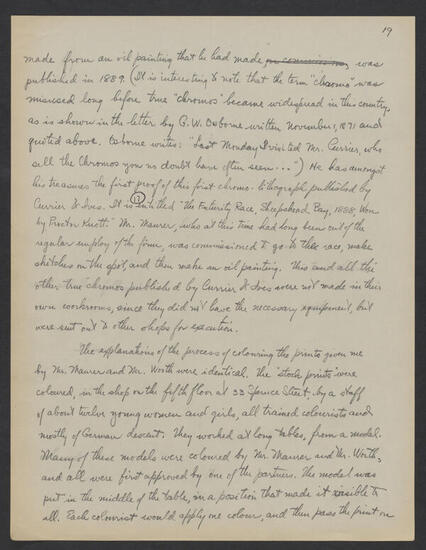 19
made from an oil painting that he had made on commission, was
published in 1889. (It is interesting to note that the term "chromo" was
misused long before true "chromos" became widespread in this country,
as is shown in the letter by G. W. Osborne written November 1, 1871 and
quoted above. Osborne writes: "Last Monday I visited Mr. Currier, who
sell the Chromos you no doubt have often seen...") He has amongst
his treasures the first proof of this first chromo-lithograph published by
Currier & Ives. It is entitled "The Futurity Race, Sheepshead Bay, 1888, Won
by Proctor Knott." Mr. Maurer, who at this time had long been out of the
regular employ of the firm, was commissioned to go to the race, make
sketches on the spot, and then make an oil painting. This and all the
other true chromos published by Currier & Ives were not made in their
own workrooms, since they did not have the necessary equipment, but
were sent out to other shops for execution.
The explanations of the process of colouring the prints given me
by Mr. Maurer and Mr. Worth were identical. The "stock prints" were
coloured, in the shop on the fifth floor at 33 Spruce Street, by a staff
of about twelve young women and girls, all trained colourists and
mostly of German descent. They worked at long tables, from a model.
Many of these models were coloured by Mr. Maurer and Mr. Worth,
and all were first approved by one of the partners. The model was
put in the middle of the table, in a position that made it visible to
all. Each colourist would apply one colour, and then pass the print on